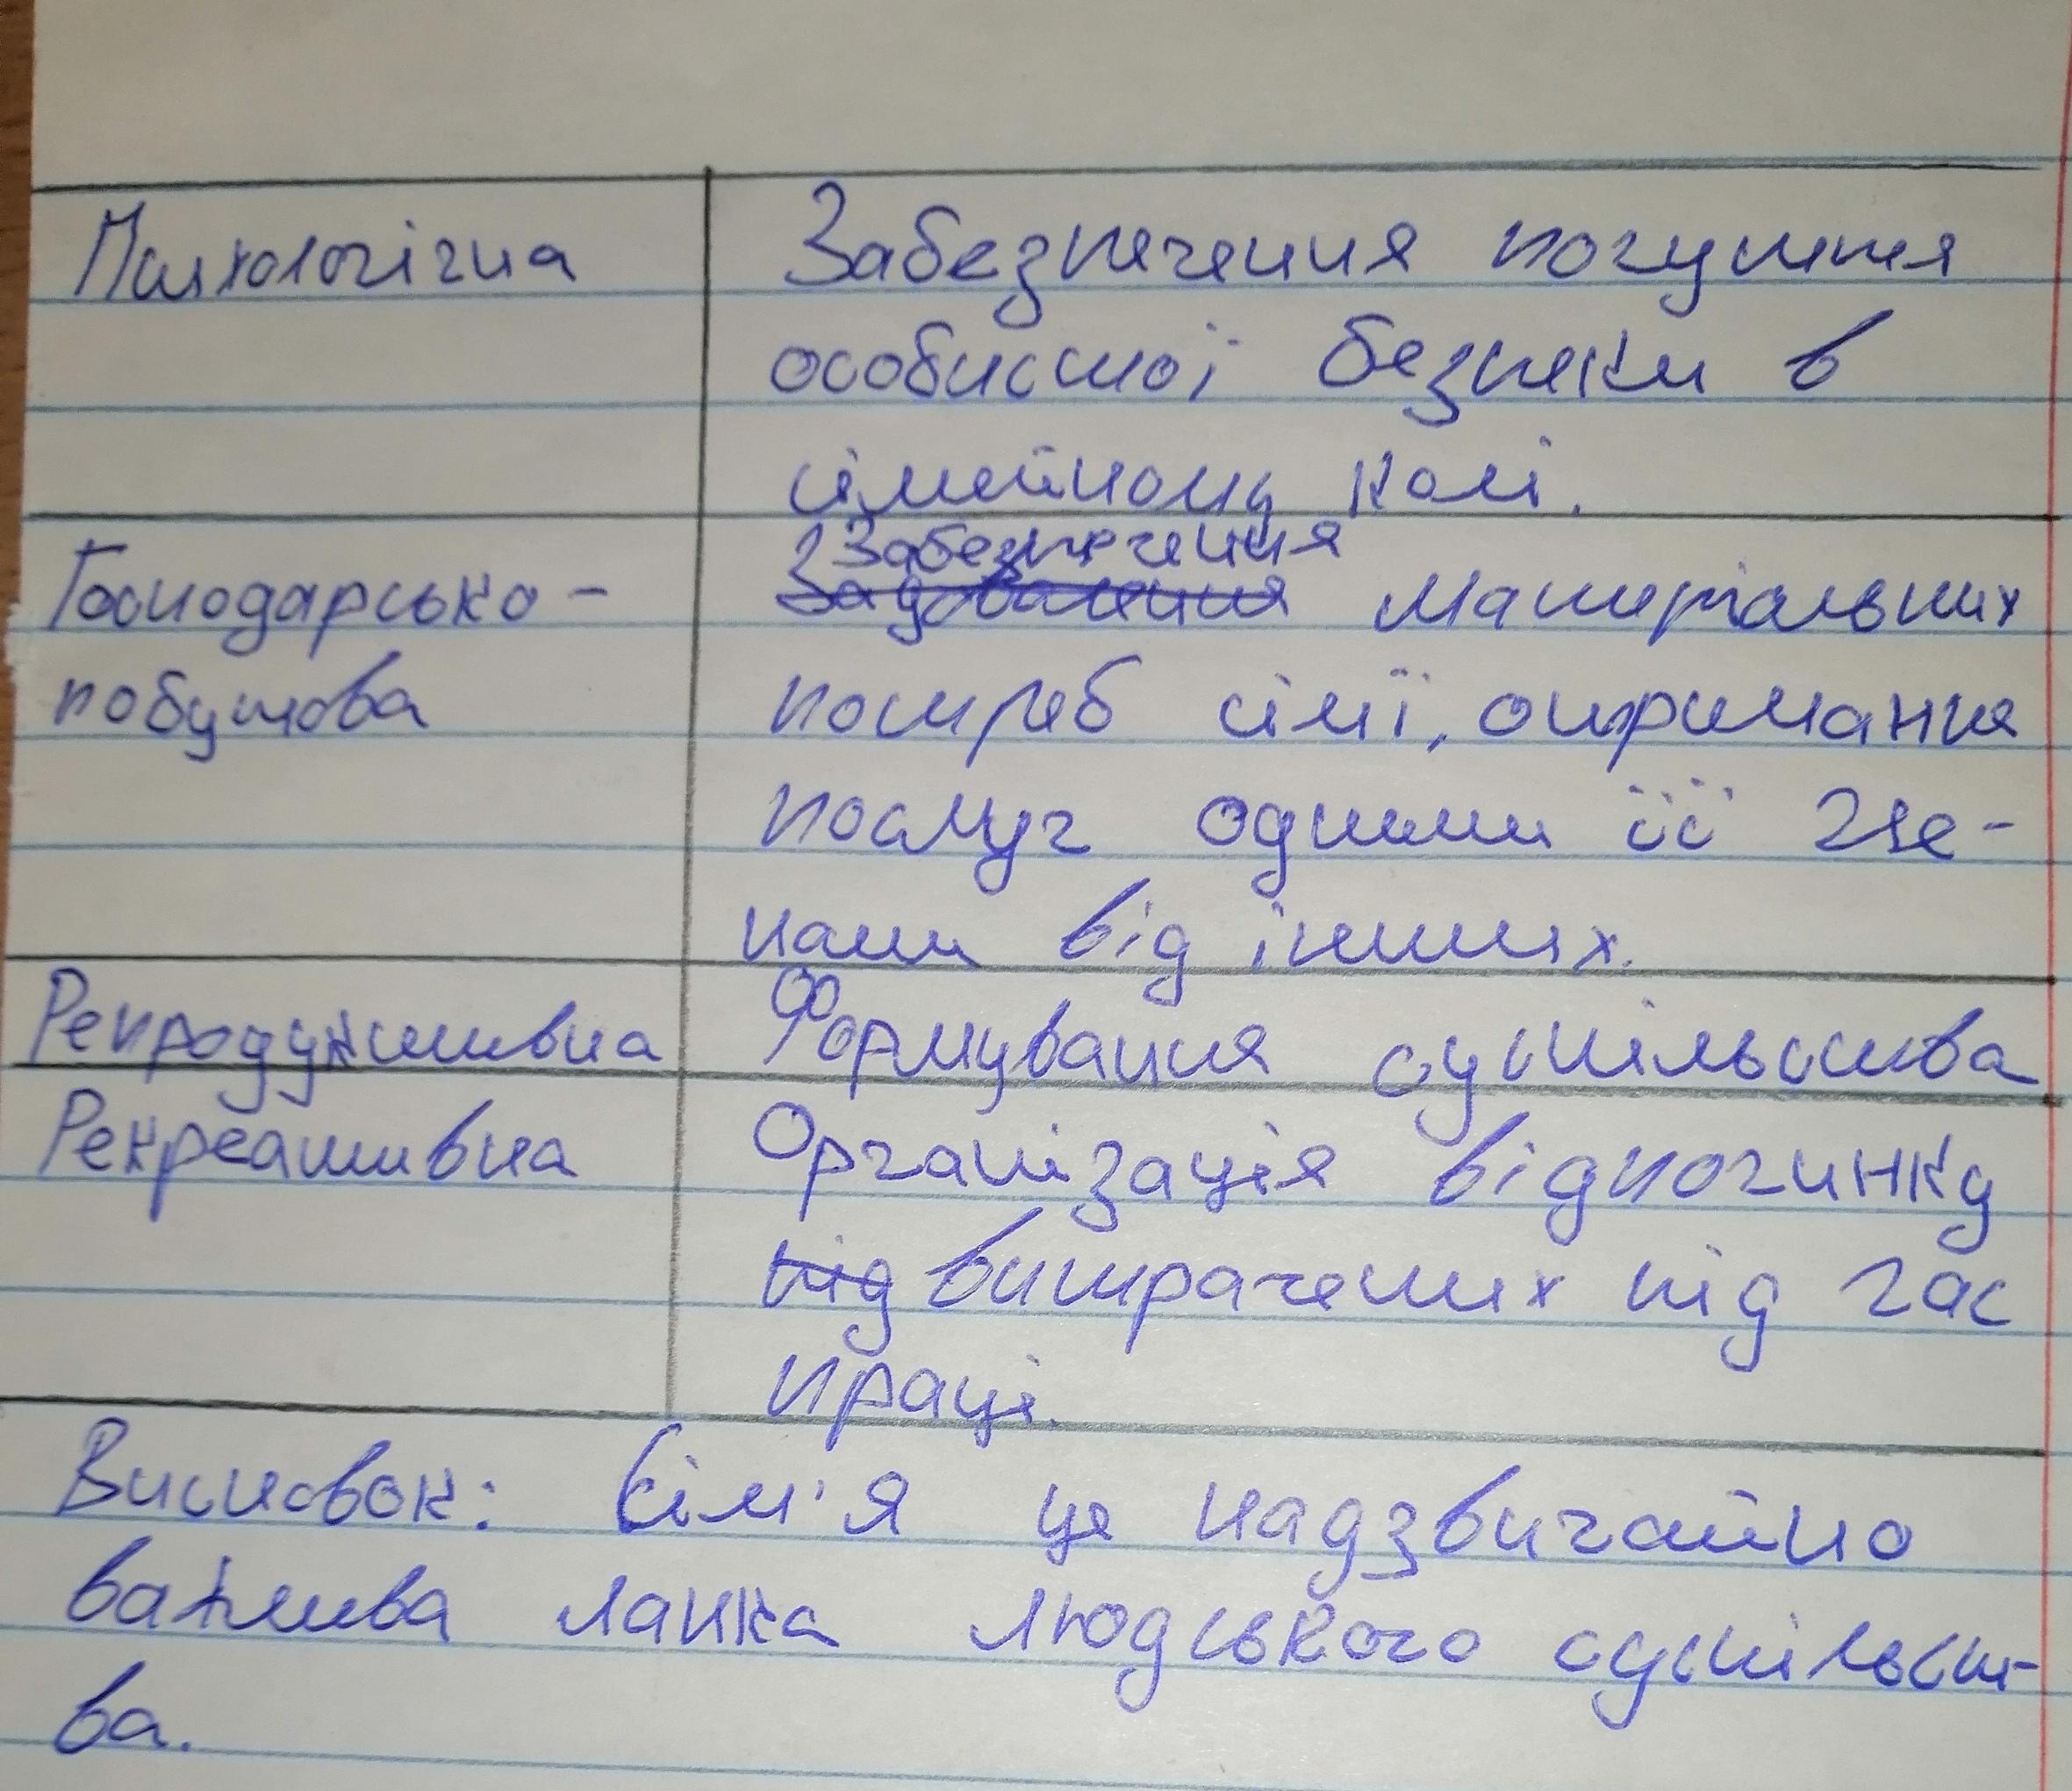 Психологічна
Забезпечення почуття
особистої безпеки в
сімейному колі.
Господарсько-
побутова
Забезпечення
Задоволення матеріальних
потреб сімї, отримання
послуг одними її чле-
нами від інших.
Репродуктивна
Формування суспільства
Рекреативна
Організація відпочинку
під витрачених під час
праці.
Висновок: Сім'я це надзвичайно
важлива ланка людського суспільст-
ва.